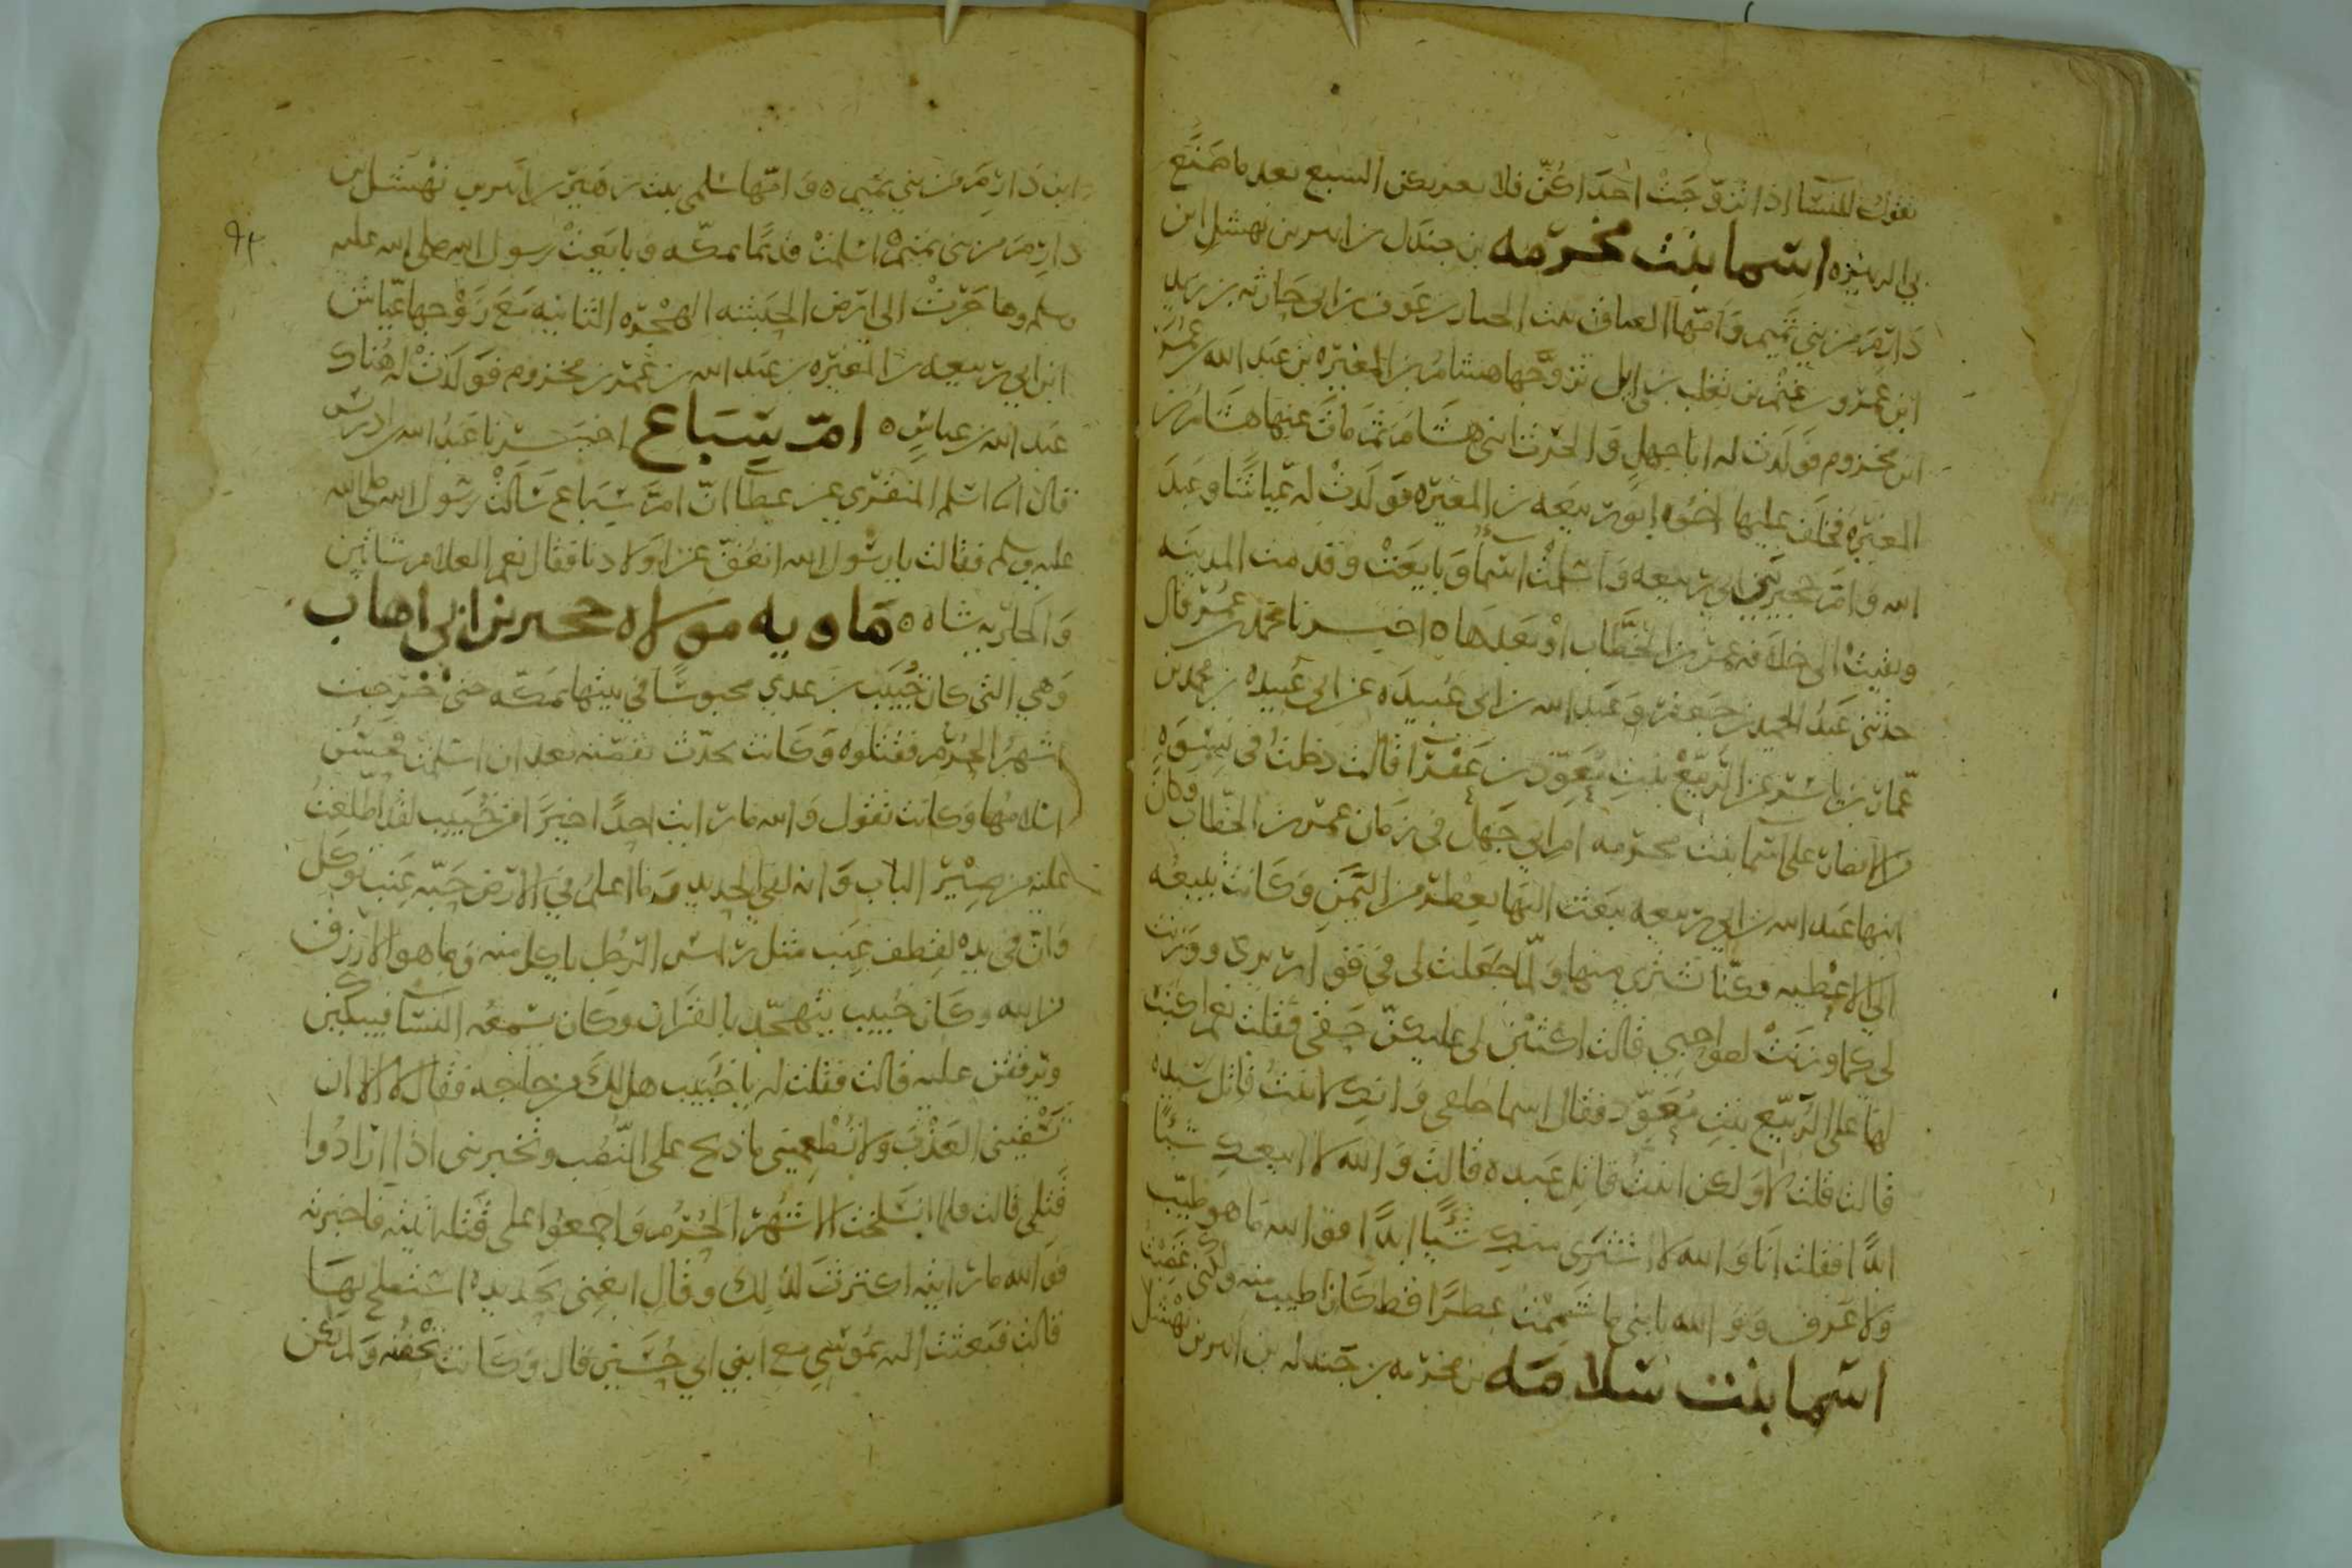 تقول للنسا اذا تزوجت احداكن فلا يغربكن السبع بعد ما صنع
بي الزبير ه اسما بنت مخرمه بن جندل بن ابير بن نهشل ابن
دارم من بني تميم وامها العناق بنت الجبار بن عوف بن ابي حارثه بن زيد
ابن عمرو بن غنم بن تغلب بن وايل تزوجها هشام بن المغيره بن عبد الله بن عمر
ابن مخزوم فولدت له ابا جهل والحرث ابني هشام ثم مات عنها هشام بن
المغيره فخلف عليها اخوه ابو ربيعه بن المغيره فولدت له عياشا وعبد
الله وام حجير بني ابي ربيعه واسلمت اسما وبايعت وقدمت المدينه
وبقيت الى خلافه عمر بن الخطاب او بعدها ه اخبرنا محمد بن عمر قال
حدثني عبد الحميد بن جعفر وعبد الله بن ابي عبيده عن ابي عبيده بن محمد بن
عمار بن ياسر عن الربيع بنت معوذ بن عفرا قالت دخلت في نسوه
من الانصار على اسما بنت مخرمه ام ابي جهل في زمان عمر بن الخطاب وكان
ابنها عبد الله بن ابي ربيعه يبعث اليها بعطر من اليمن وكانت تبيعه
الى الاعطيه وكنا نشتري منها ولما جعلت لي في قوارير ي ووزنت
لي كما وزنت لصواحبي قالت اكتبن لي عليكن حقي فقلت نعم اكتب
لها على الربيع بنت معوذ فقالت اسما حلقى وانك لابنت قاتل سيده
قالت قلت لا ولكن ابنت قاتل عبده قالت والله لا ابيعك شيئا
ابدا فقلت انا والله لا اشتري منك شيئا ابدا فوالله ما هو طيب
ولا عرف ووالله يا بني ما شممت عطرا قط كان اطيب منه ولكني غضبت
اسما بنت سلامه بن مخرمه بن جندل بن ابير بن نهشل
ابن دارم من بني تميم ه وامها سلمى بنت زهير بن ابير بن نهشل بن
دارم من بني تميم اسلمت قديما بمكه وبايعت رسول الله صلى الله عليه
وسلم وهاجرت الى ارض الحبشه الهجره الثانيه مع زوجها عياش
ابن ابي ربيعه بن المغيره بن عبد الله بن عمر بن مخزوم فولدت له هناك
عبد الله بن عياش ه ام سباع اخبرنا عبد الله بن ادريس
قال انا اسلم المنقري عن عطا ان ام سباع سالت رسول الله صلى الله
عليه وسلم فقالت يا رسول الله انعق عن اولادنا فقال نعم الغلام شاتين
والجاريه شاه ه ماويه مولاه حجير بن ابي اهاب
وهي التي كان خبيب بن عدي محبوسا في بيتها بمكه حتى خرجت
اشهر الحرم فقتلوه وكانت تحدث بقصته بعد ان اسلمت فحسن
اسلامها وكانت تقول والله ما رايت احدا خيرا من خبيب لقد اطلعت
عليه من صير الباب وانه لفي الحديد وما اعلم في الارض حبه عنب توكل
وان في يده لقطف عنب مثل راس الرجل ياكل منه وما هو الا رزق
من الله وكان خبيب يتهجد بالقران وكان يسمعه النسا فيبكين
ويرققن عليه قالت فقلت له يا خبيب هل لك من حاجه فقال لا الا ان
تسقيني العذب ولا تطعميني ما ذبح على النصب وتخبريني اذا ارادوا
قتلي قالت فلما انسلخت الاشهر الحرم واجمعوا على قتله اتيته فاخبرته
فوالله ما رايته اكترث لذلك وقال ابغيني بحديده استصلح بها
قالت فبعثت اليه بموسى مع ابني ابي حسين قال وكانت تحضنه ولم يكن